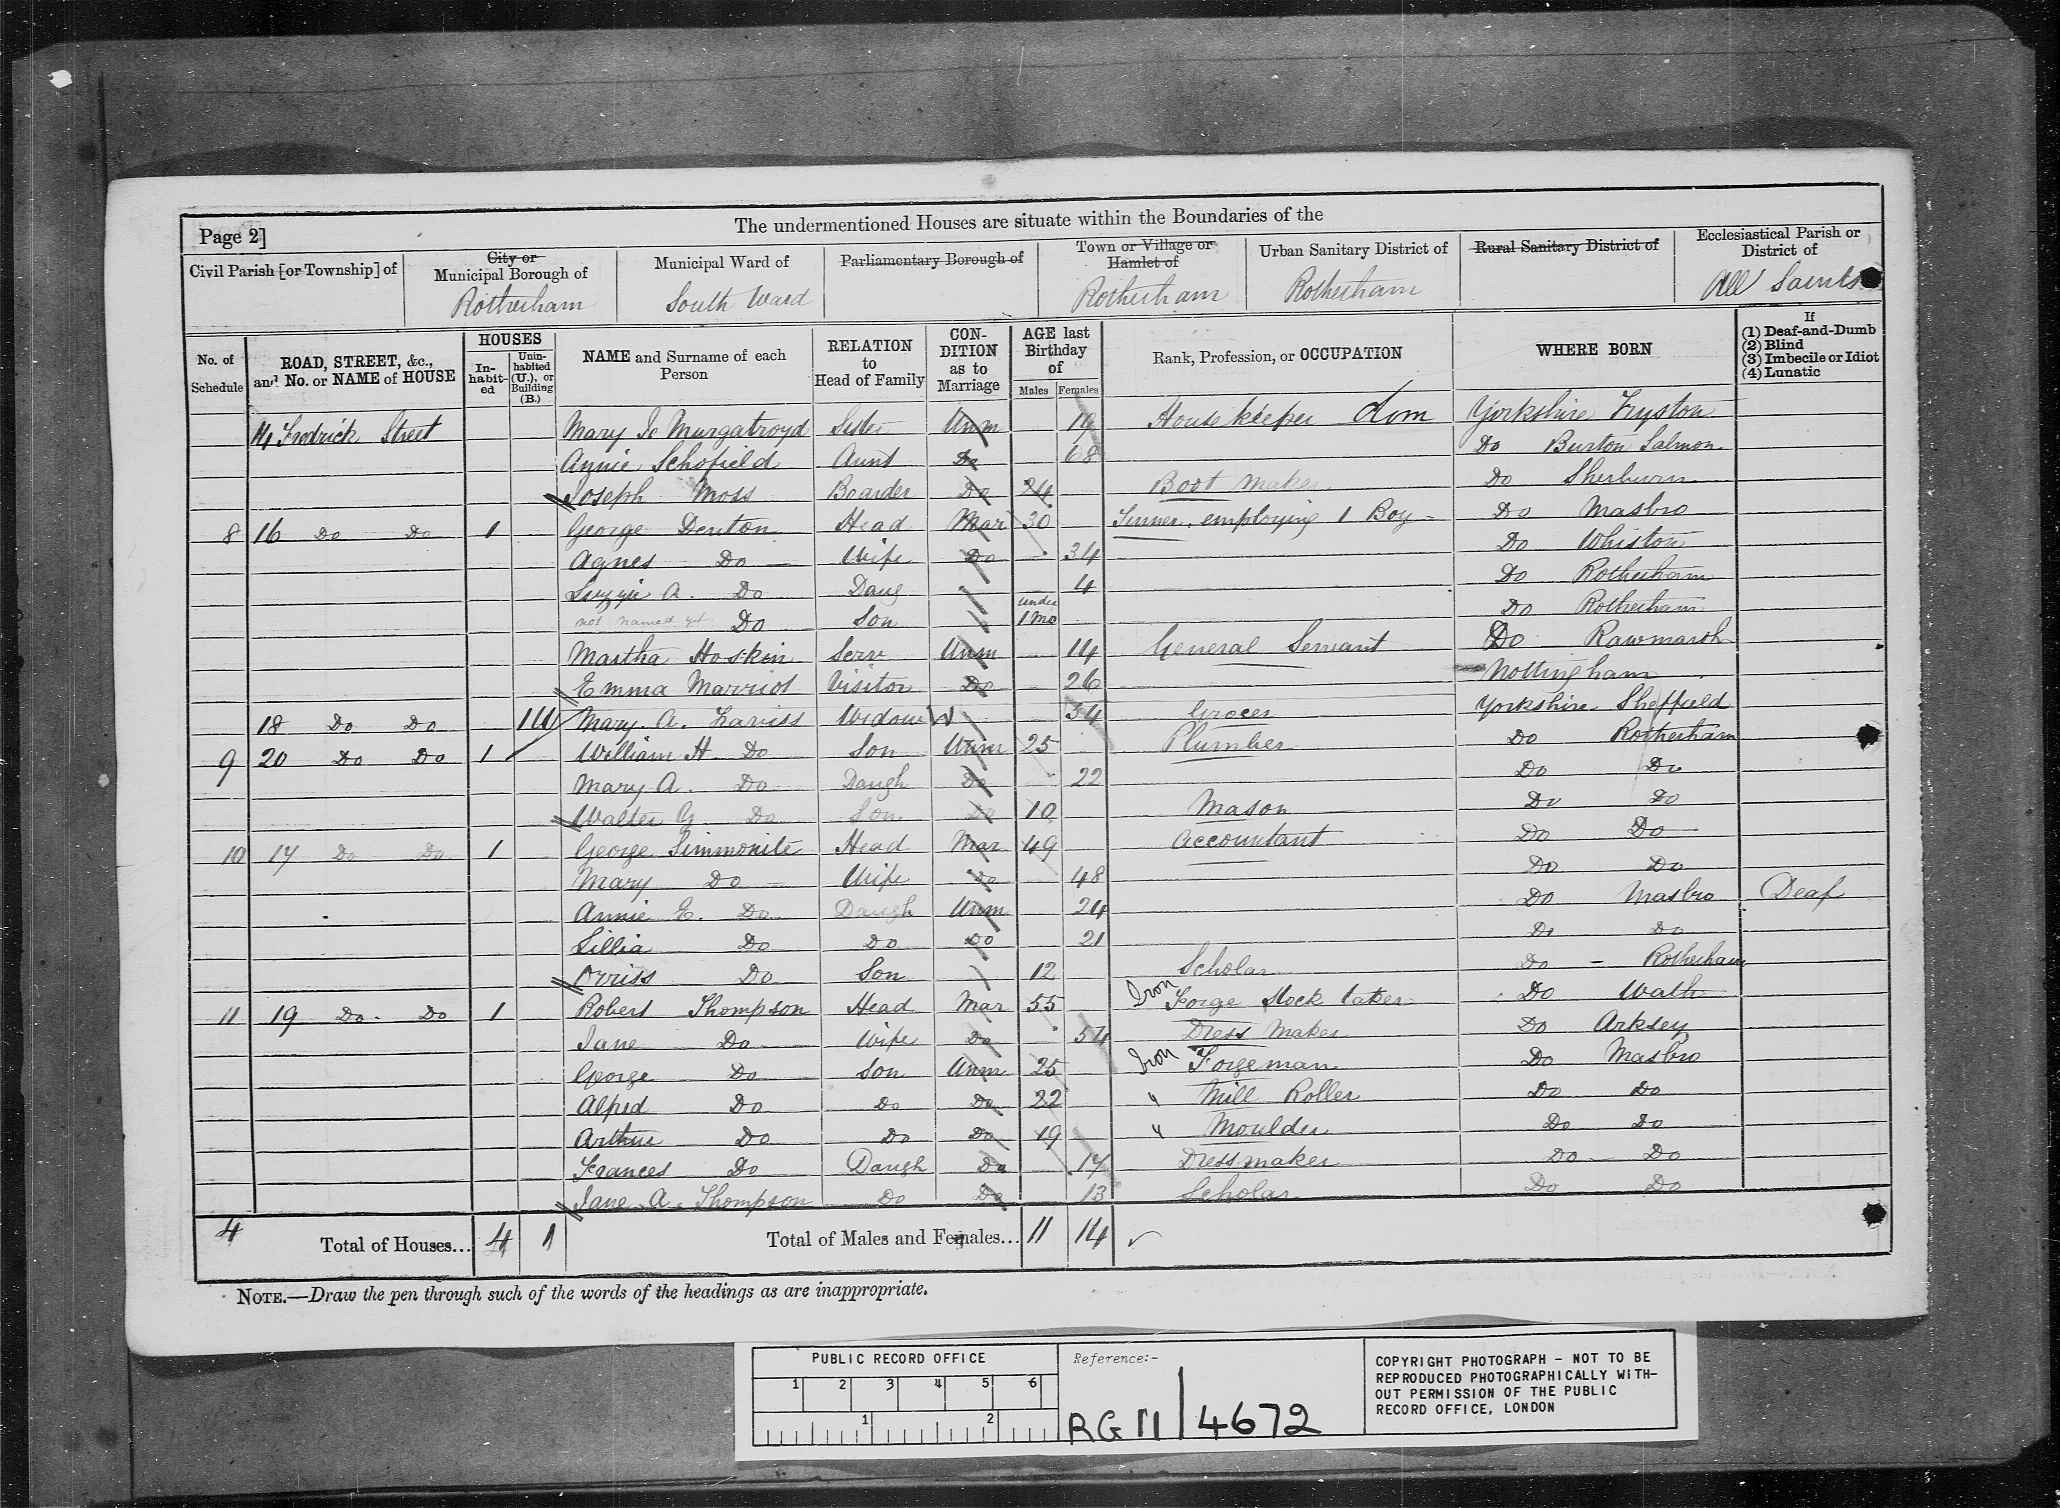 The undermentioned Houses are situate within the Boundaries of the
Page 2]
Civil Parish [or Township] of
City or Municipal Borough of
Rotherham
Municipal Ward of
South Ward
Parliamentary Borough of
Town or Village or Hamlet of
Rotherham
Urban Sanitary District of
Rotherham
Rural Sanitary District of
Ecclesiastical Parish or District of
All Saints
No. of Schedule
ROAD, STREET, &c., and No. or NAME of HOUSE
HOUSES
In-habit-ed
Unin-habited (U.), or Building (B.)
NAME and Surname of each Person
RELATION to Head of Family
CON-DITION as to Marriage
AGE last Birthday of
Males Females
Rank, Profession, or OCCUPATION
WHERE BORN
If
(1) Deaf-and-Dumb
(2) Blind
(3) Imbecile or Idiot
(4) Lunatic
14 Fredrick Street Mary Murgatroyd Sister Unm 19 House keeper dom Yorkshire Fryston
Annie Schofield Aunt Do 68 Do Burton Salmon
Joseph Moss Boarder Do 24 Boot maker Do Sherburn
8 16 Do Do 1 George Denton Head Mar 30 employing 1 Boy Do Masbro
Agnes Do Wife Do 34 Do Whiston
Lizzie A. Do Daug 4 Do Rotherham
not named yet Do Son under 1 Mo Do Rotherham
Martha Hoskin Serv Unm 14 General Servant Do Rawmarsh
Emma Marriot Visitor Do 26 Nottingham
18 Do Do 1 U Mary A. Widow W 54 Grocer Yorkshire Sheffield
9 20 Do Do 1 William H. Do Son Unm 25 Plumber Do Rotherham
Mary A. Do Daugh Do 22 Do Do
Walter G. Do Son Do 10 Mason Do Do
10 17 Do Do 1 George Simmonite Head Mar 49 Accountant Do Do
Mary Do Wife Do 48 Do Do
Annie E. Do Daugh Unm 24 Do Masbro Deaf
Lillia Do Do Do 21 Do Do
Orriss Do Son 12 Scholar Do - Rotherham
11 19 Do Do 1 Robert Thompson Head Mar 55 Iron Forge Stock taker Do Wath
Jane Do Wife Do 54 Dress Maker Do Arksey
George Do Son Unm 25 Iron Forgeman Do Masbro
Alfred Do Do Do 22 " Mill Roller Do Do
Arthur Do Do Do 19 " Moulder Do Do
Frances Do Daugh Do 17 Dressmaker Do Do
Jane A. Thompson Do Do 13 Scholar Do Do
4 Total of Houses... 4 1 Total of Males and Females... 11 14 ✓
NOTE.—Draw the pen through such of the words of the headings as are inappropriate.
PUBLIC RECORD OFFICE
1 2 3 4 5 6
1 2
Reference:-
RG 11 / 4672
COPYRIGHT PHOTOGRAPH - NOT TO BE
REPRODUCED PHOTOGRAPHICALLY WITH-
OUT PERMISSION OF THE PUBLIC
RECORD OFFICE, LONDON